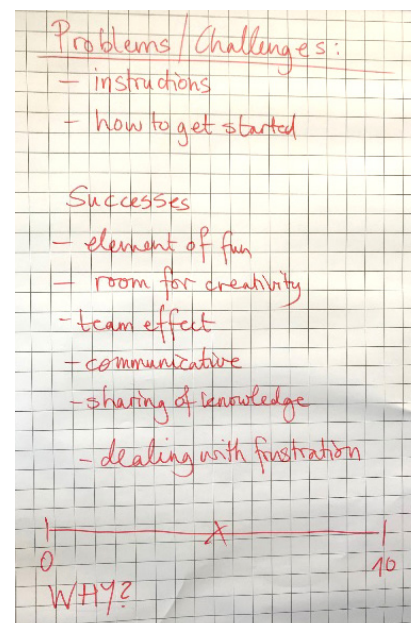 Problems/Challenges:
- instructions
- how to get started
Successes
- element of fun
- room for creativity
- team effect
- communicative
- sharing of knowledge
- dealing with frustration
0 10
WHY?